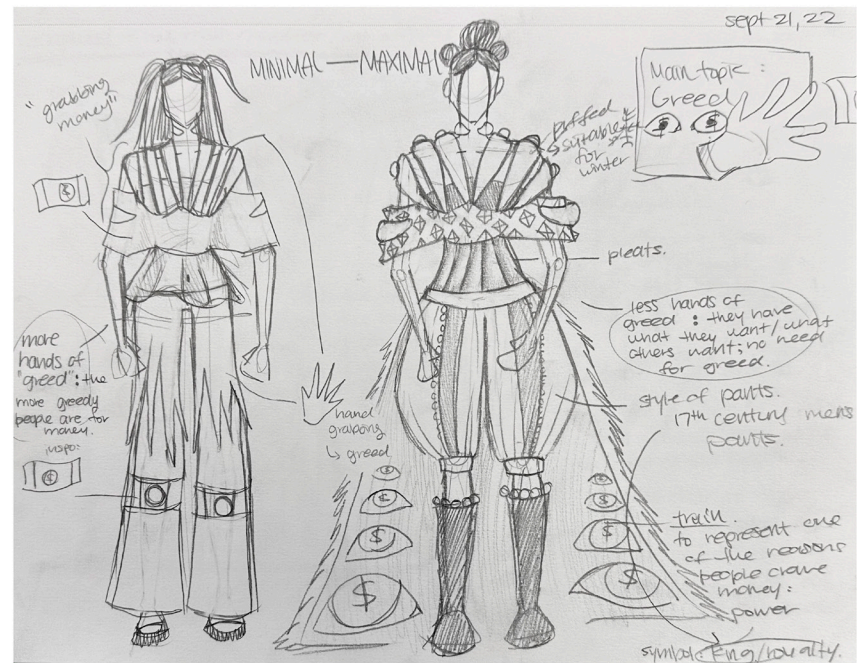 sept 21, 22
MINIMAL — MAXIMAL
"grabbing
money"
$
Main topic:
Greed
puffed
suitable
for
winter
pleats.
less hands of
greed : they have
what they want/what
others want; no need
for greed.
more
hands of
"greed": the
more greedy
people are for
money.
inspo:
$
hand
grabbing
↳ greed
style of pants.
17th century mens
pants.
$
$
$
$
$
$
train.
to represent one
of the reasons
people crave
money:
power
symbol: king/royalty.